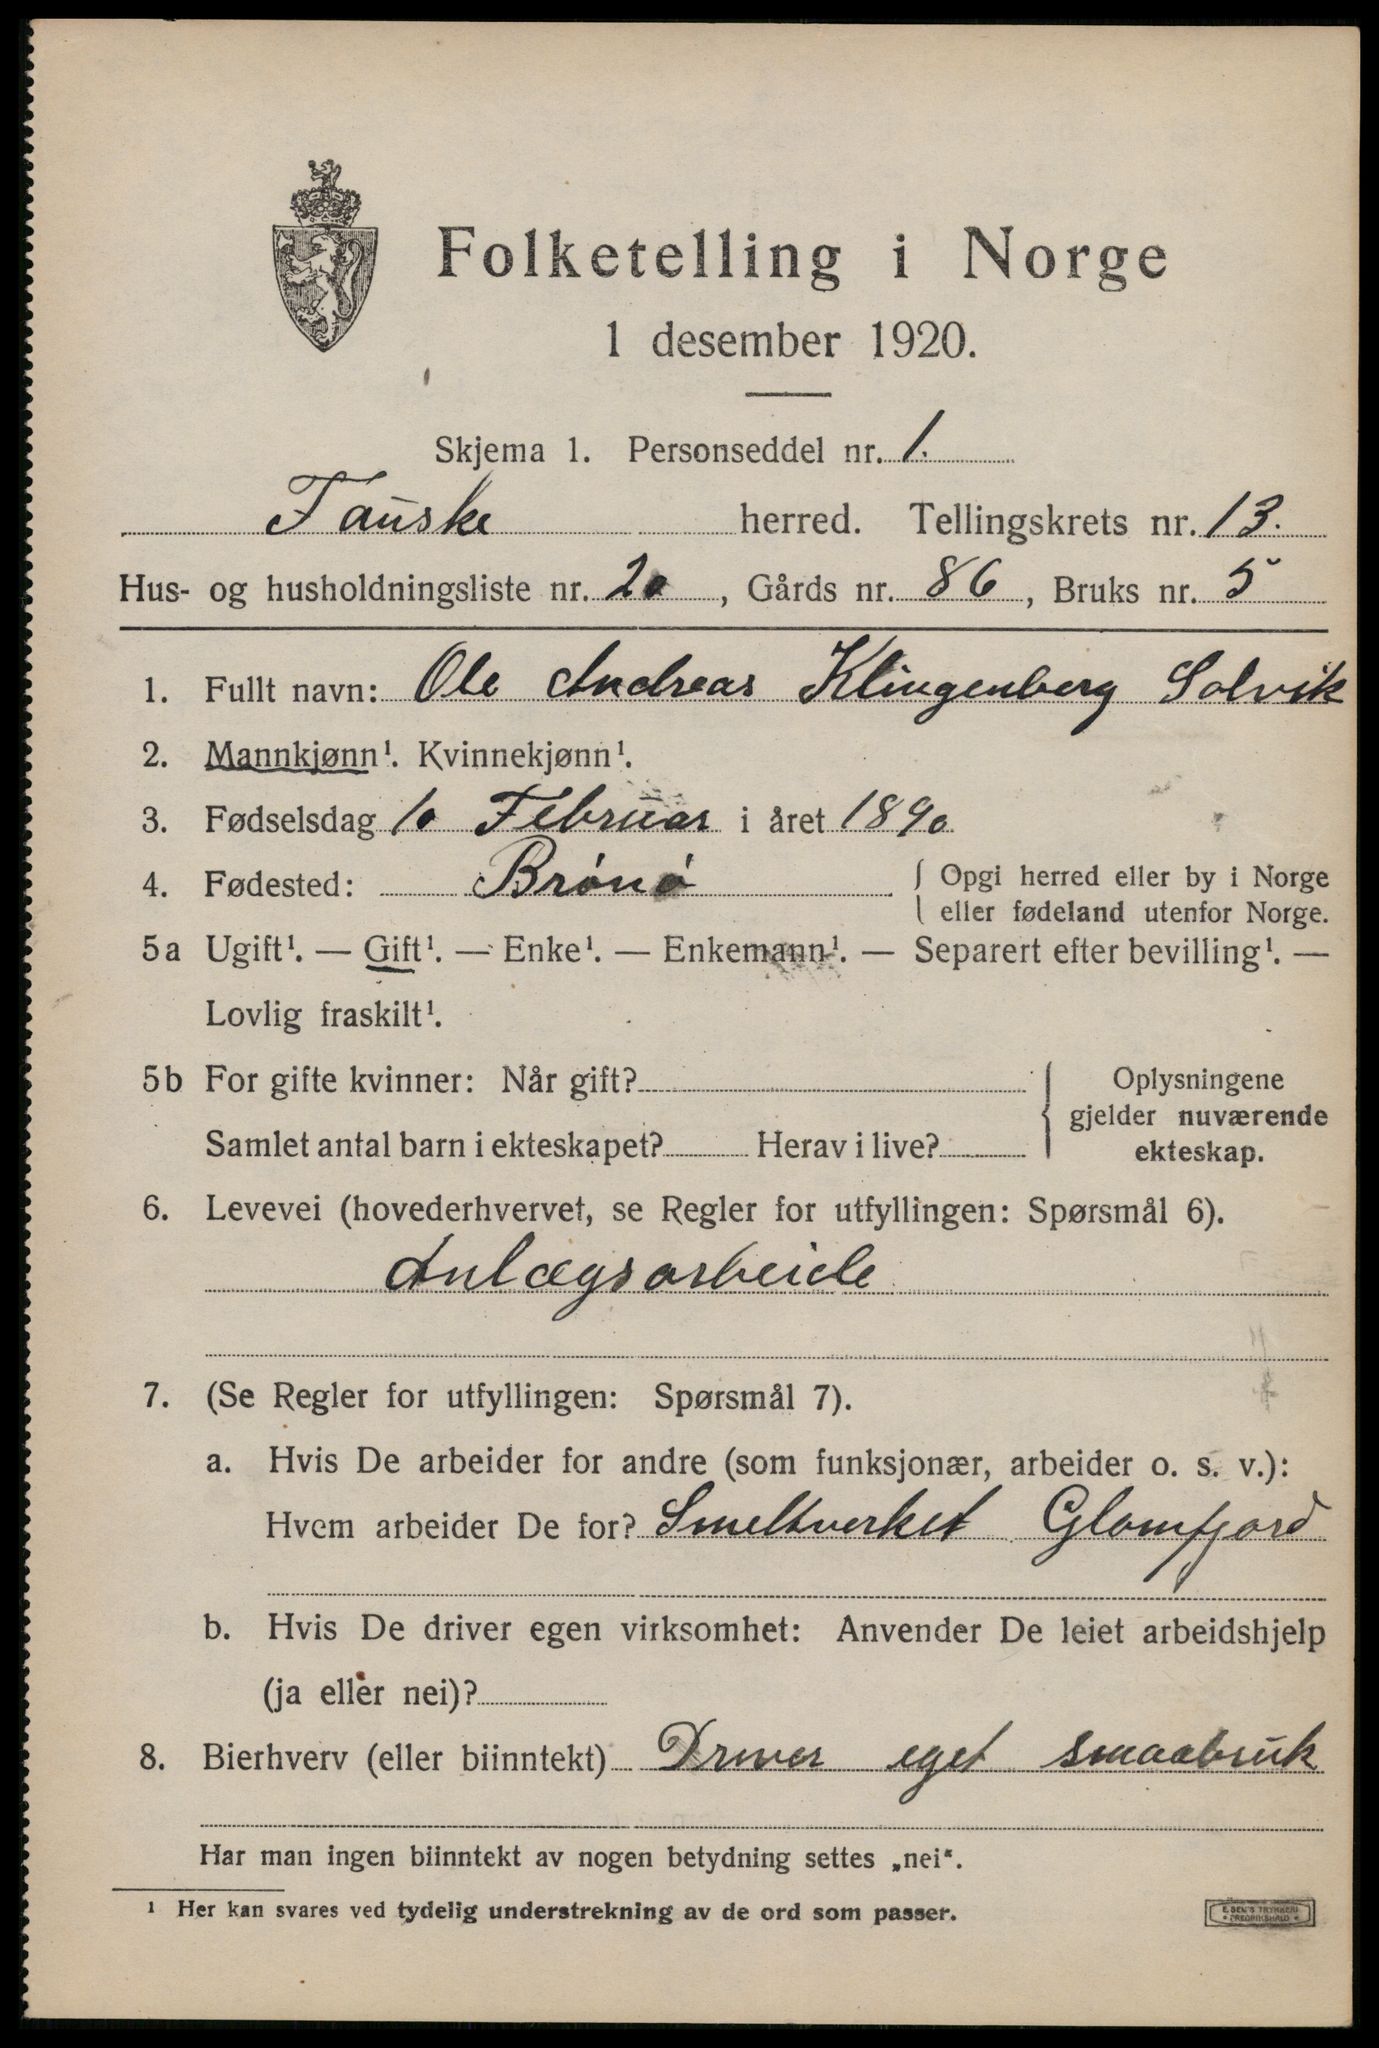 Folketelling i Norge
1 desember 1920.
Skjema 1. Personseddel nr. 1.
Fauske herred. Tellingskrets nr. 13.
Hus- og husholdningsliste nr. 20, Gårds nr. 86, Bruks nr. 5
1. Fullt navn: Ole Andreas Klingenberg Solvik
2. Mannkjønn¹. Kvinnekjønn¹.
3. Fødselsdag 10 Februar i året 1890
4. Fødested: Brønø { Opgi herred eller by i Norge
eller fødeland utenfor Norge.
5a Ugift¹. — Gift¹. — Enke¹. — Enkemann¹. — Separert efter bevilling¹. —
Lovlig fraskilt¹.
5b For gifte kvinner: Når gift? { Oplysningene
gjelder nuværende
Samlet antal barn i ekteskapet? Herav i live? ekteskap.
6. Levevei (hovederhvervet, se Regler for utfyllingen: Spørsmål 6).
Anlægsarbeide
7. (Se Regler for utfyllingen: Spørsmål 7).
a. Hvis De arbeider for andre (som funksjonær, arbeider o. s. v.):
Hvem arbeider De for? Smeltverket Glomfjord
b. Hvis De driver egen virksomhet: Anvender De leiet arbeidshjelp
(ja eller nei)?
8. Bierhverv (eller biinntekt) Driver eget smaabruk
Har man ingen biinntekt av nogen betydning settes „nei“.
¹ Her kan svares ved tydelig understrekning av de ord som passer.
E. SEM'S TRYKKERI
* FREDRIKSHALD *